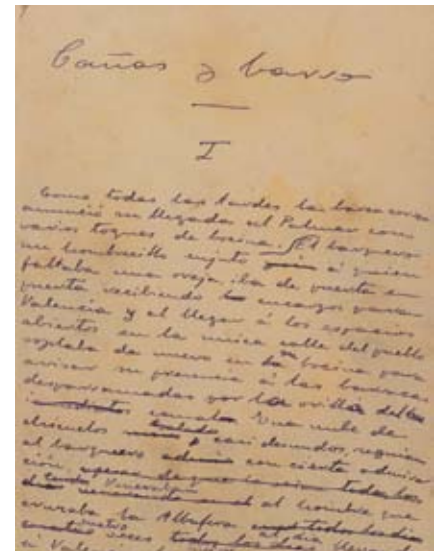 Cañas y barro
I
Como todas las tardes la barca correo
anunció su llegada al Palmar con
varios toques de bocina. El barquero
un hombrecillo enjuto á quien
faltaba una oreja iba de puerta en
puerta recibiendo encargos para
Valencia y al llegar á los espacios
abiertos en la unica calle del pueblo
soplaba de nuevo en la bocina para
avisar su presencia á las barracas
desparramadas por la orilla del
canal. Una nube de
chicuelos casi desnudos, seguian
al barquero con cierta admira
ción,
al hombre que
cruzaba la Albufera al dia
cuatro veces
á Valencia